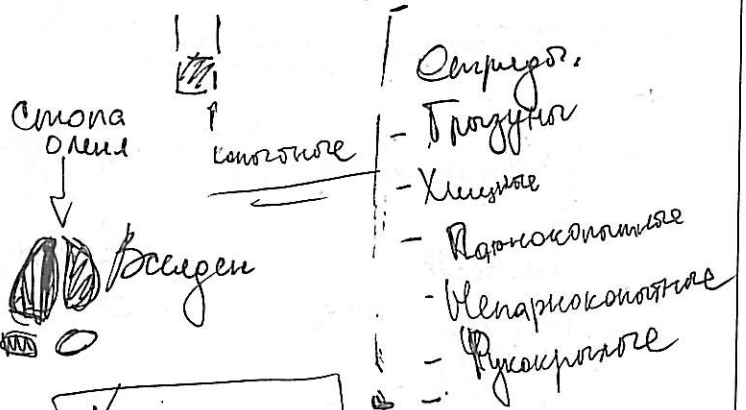 Стопа
оленя
копытные
Вселден
Отряды.
- Грызуны
- Хищные
- Парнокопытные
- Непарнокопытные
- Рукокрылые
-